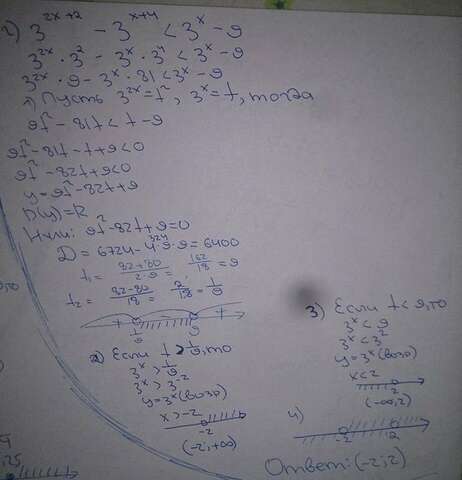 2) 3^{2x+2} - 3^{x+4} < 3^x - 9
3^{2x} · 3^2 - 3^x · 3^4 < 3^x - 9
3^{2x} · 9 - 3^x · 81 < 3^x - 9
1) Пусть 3^{2x} = t^2, 3^x = t, тогда
9t^2 - 81t < t - 9
9t^2 - 81t - t + 9 < 0
9t^2 - 82t + 9 < 0
y = 9t^2 - 82t + 9
D(y) = R
Нули: 9t^2 - 82t + 9 = 0
324
D = 6724 - 4·9·9 = 6400
t_1 = (82+80)/(2·9) = 162/18 = 9
t_2 = (82-80)/18 = 2/18 = 1/9
+ - +
1/9 9
2) Если t > 1/9, то
3^x > 1/9
3^x > 3^{-2}
y = 3^x (возр)
x > -2
-2
(-2; +∞)
3) Если t < 9, то
3^x < 9
3^x < 3^2
y = 3^x (возр)
x < 2
2
(-∞; 2)
4)
-2 2
Ответ: (-2; 2)